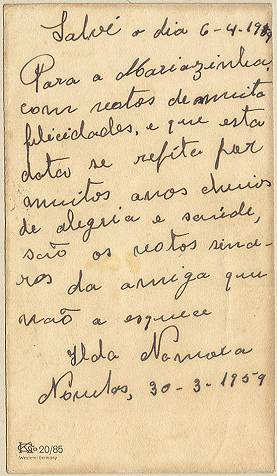 Salvé o dia 6-4-1959
Para a Mariazinha,
com votos de muita
felicidades, e que esta
data se repita por
muitos anos cheios
de alegria e saúde,
são os votos since-
ros da amiga que
não a esquece
Ilda
30-3-1959
20/85
Western Germany